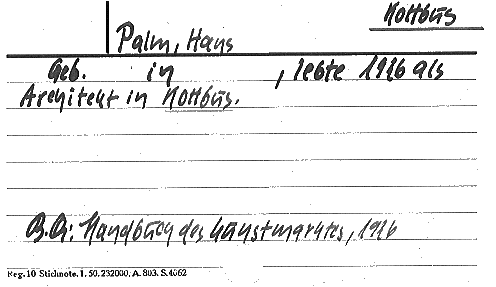 Kottbus
Palm, Hans
Geb. in , lebte 1926 als
Architekt in Kottbus.
Handbuch des Kunstmarktes, 1926
Reg. 10 Stichnote. 1. 50. 232000. A. 803. S. 4062